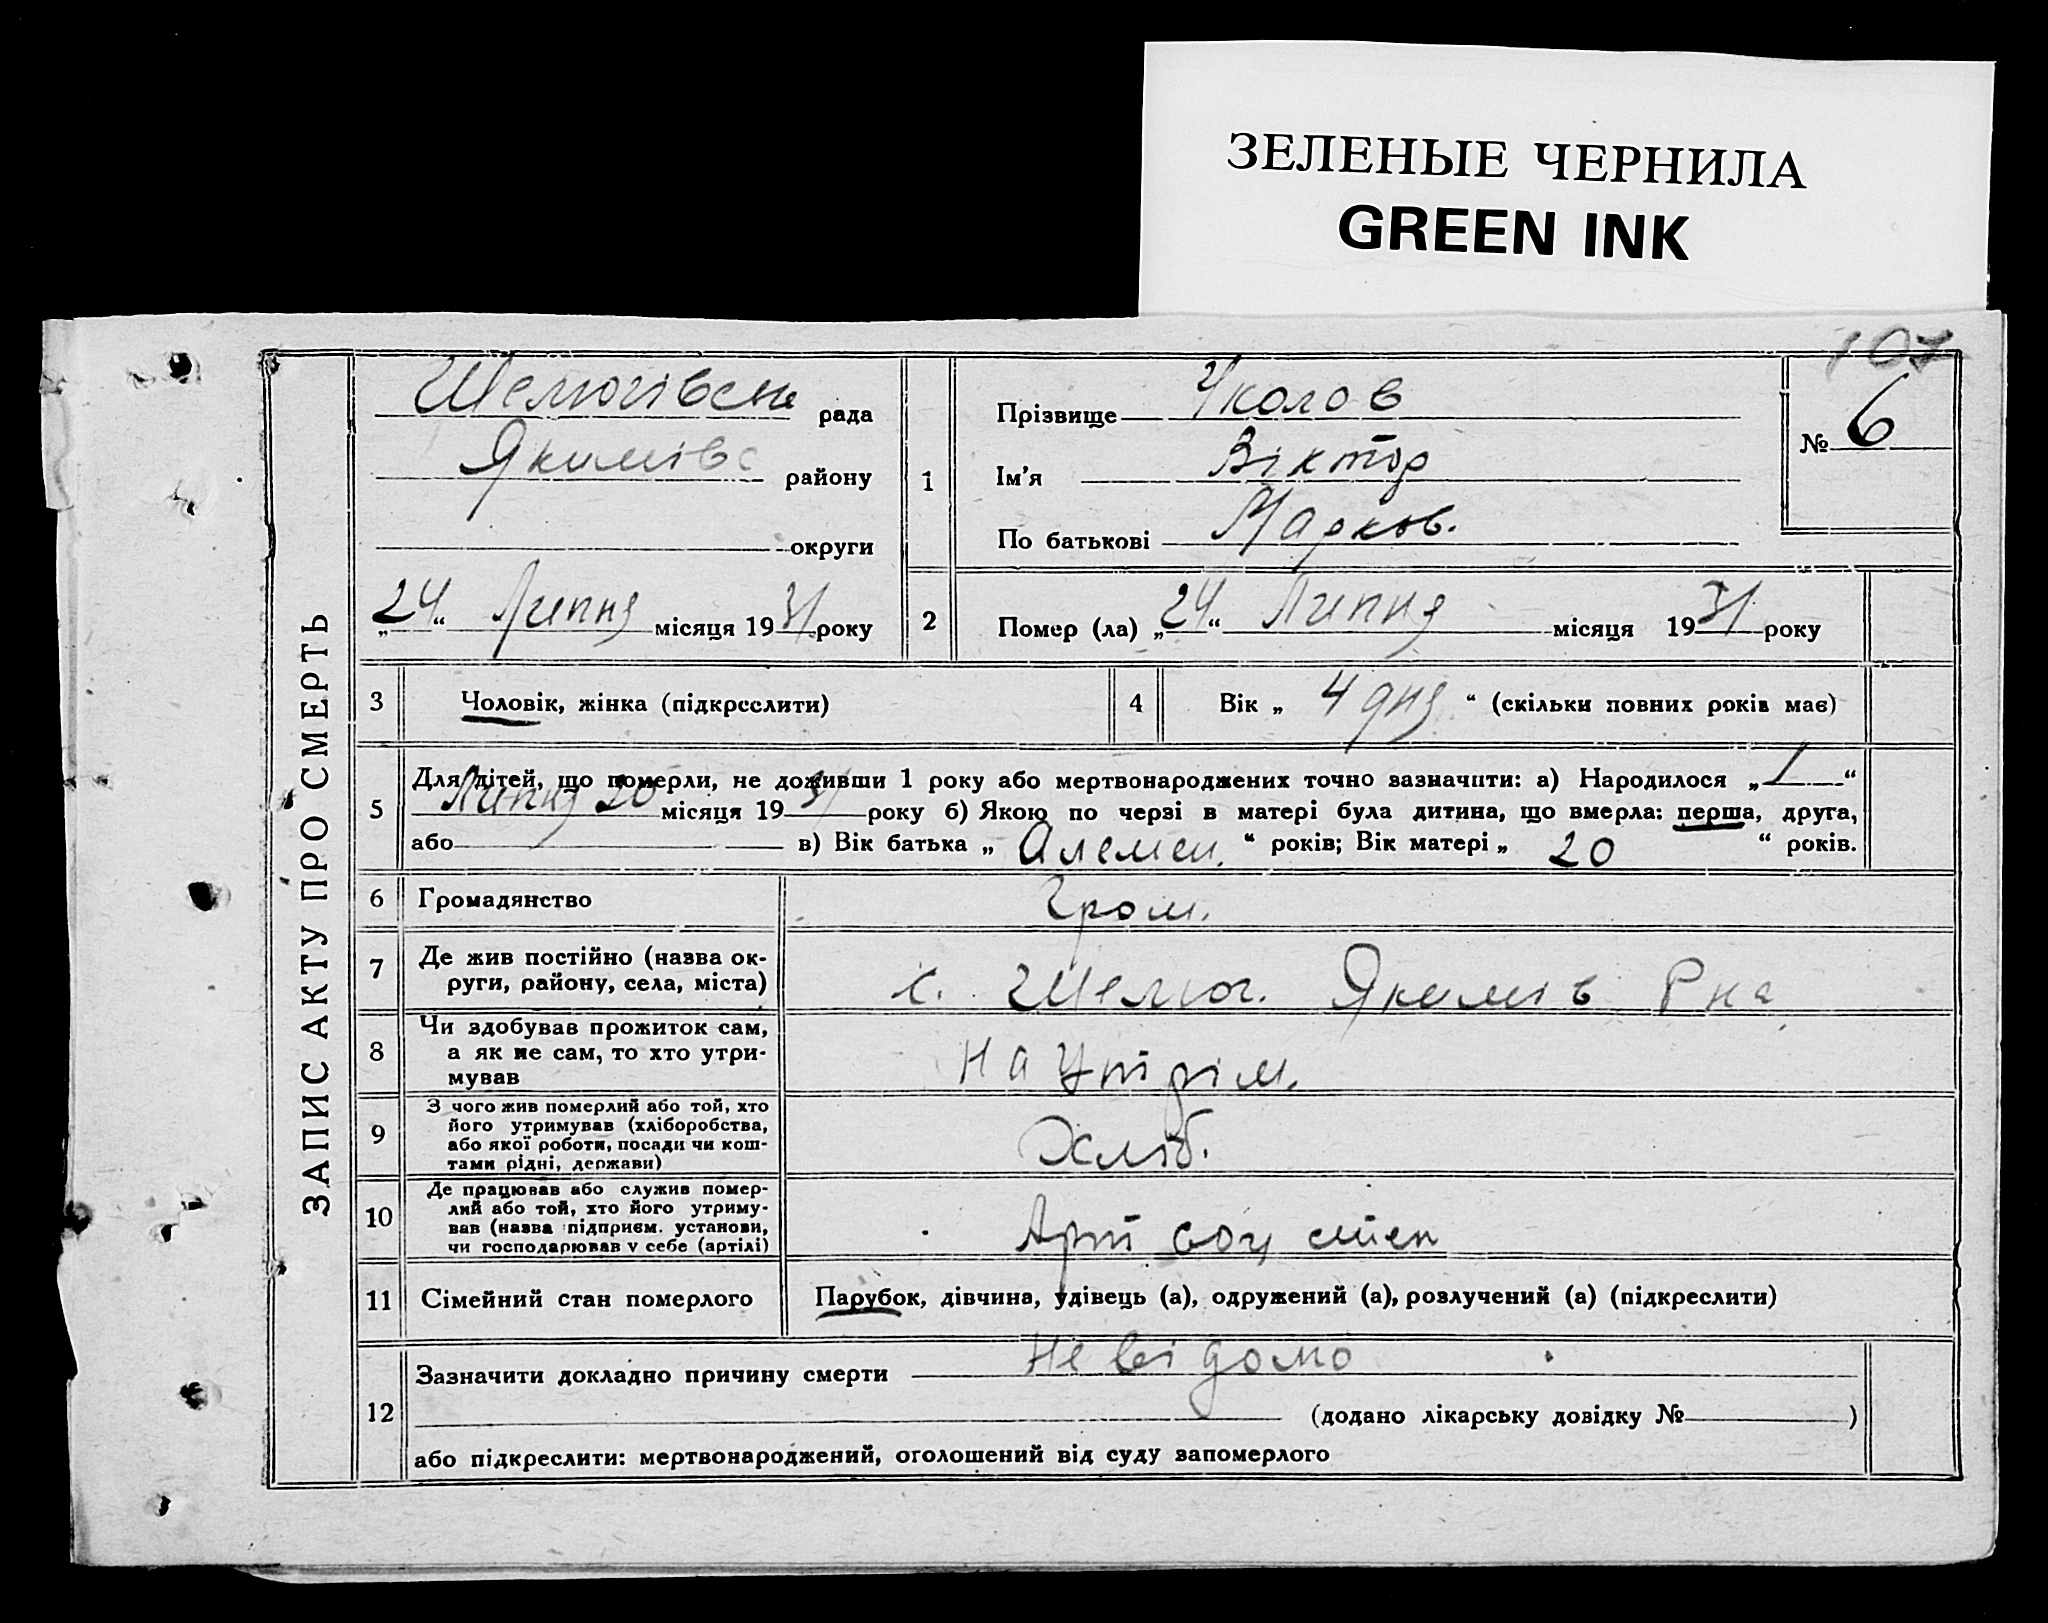 ЗЕЛЕНЫЕ ЧЕРНИЛА
GREEN INK
107
ЗАПИС АКТУ ПРО СМЕРТЬ
Шелюгівськ рада
Якимівс району
округи
„24“ Липня місяця 1931 року
1
Прізвище Уколов
Ім'я Віктор
По батькові Марков.
№ 6
2
Помер (ла) „24“ Липня місяця 1931 року
3
Чоловік, жінка (підкреслити)
4
Вік „ 4 дня “ (скільки повних років має)
5
Для дітей, що померли, не доживши 1 року або мертвонароджених точно зазначити: а) Народилося „1“
Липня 20 місяця 1931 року б) Якою по черзі в матері була дитина, що вмерла: перша, друга,
або в) Вік батька „ Алемен. “ років; Вік матері „ 20 “ років.
6
Громадянство
Гром.
7
Де жив постійно (назва ок-
руги, району, села, міста)
с. Шелюг. Якимів Рна
8
Чи здобував прожиток сам,
а як не сам, то хто утри-
мував
На Утрім.
9
З чого жив померлий або той, хто
його утримував (хліборобства,
або якої роботи, посади чи кош-
тами рідні, держави)
Хліб.
10
Де працював або служив помер-
лий або той, хто його утриму-
вав (назва підприєм. установи,
чи господарював у себе (артілі)
Арт соц степ
11
Сімейний стан померлого
Парубок, дівчина, удівець (а), одружений (а), розлучений (а) (підкреслити)
12
Зазначити докладно причину смерти Невідомо
(додано лікарську довідку № )
або підкреслити: мертвонароджений, оголошений від суду запомерлого